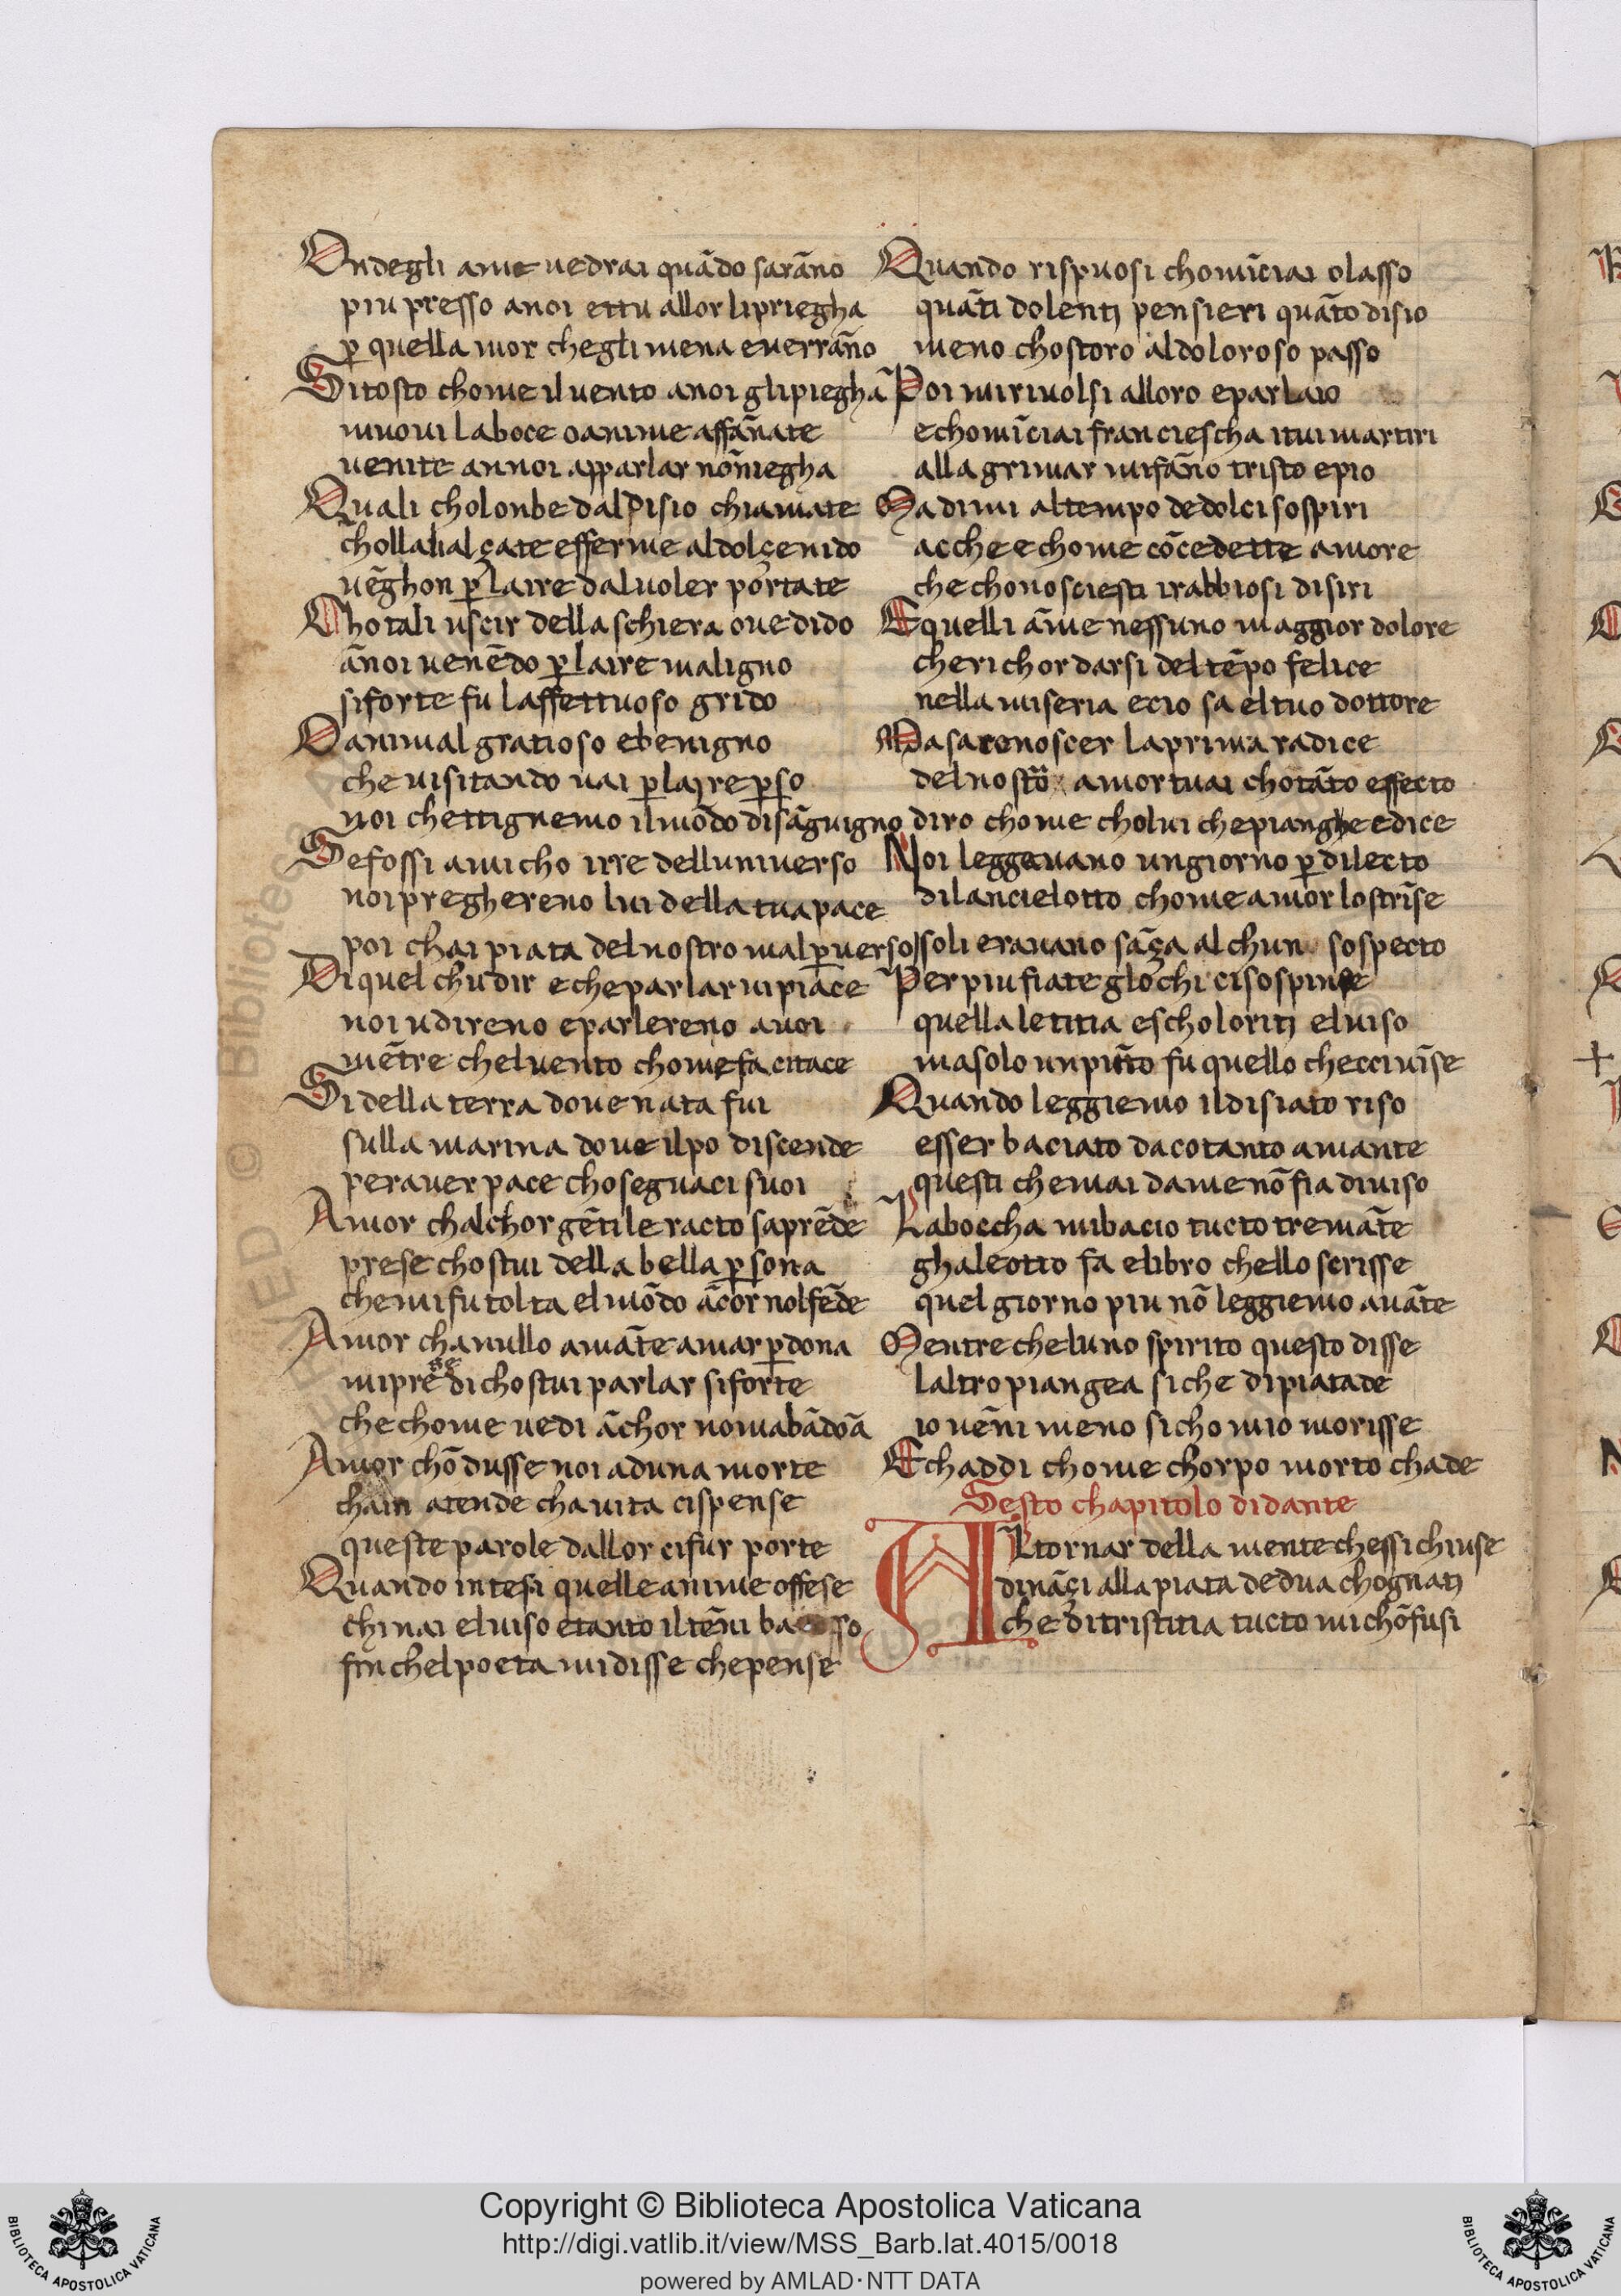 Ondegli ame uedrai quãdo sarãno
piu presso anoi ettu allor lipriegha
ꝑ quella mor chegli mena euerrãno
Sitosto chome il uento anoi glipiegha
muoui laboce oanime affãnate
uenite annoi apparlar nõniegha
Quali cholonbe dal disio chiamate
chollali alçate efferme aldolçe nido
uẽghon ꝑ laire daluoler portate
Chotali uscir della schiera oue dido
ãnoi uenẽdo ꝑ laire maligno
siforte fu laffettuoso grido
O animal gratioso ebenigno
che uisitando uai ꝑ laire ꝑso
noi chettignemo ilmõdo disãguigno
Sefossi amicho irre delluniuerso
noi preghereno lui della tua pace
poi chai piata del nostro mal ꝑuerso
Di quel chudir e che parlar ui piace
noi udireno eparlereno auoi
mẽtre cheluento chome fa citace
Si della terra doue nata fui
sulla marina doue ilpo discende
perauer pace choseguaci suoi
Amor chalchor gẽtile racto saprẽde
prese chostui della bella ꝑsona
chemi fu tolta el mõdo ãcor nolfẽde
Amor chanullo amãte amar ꝑdona
mi prese di chostui parlar siforte
che chome uedi ãchor nomabãdoã
Amor chõdusse noi aduna morte
chain atende cha uita cispense
queste parole dallor cifur porte
Quando intesi quelle anime offese
chinai eluiso etanto il tẽni basso
fin chelpoeta midisse chepense
Quando rispuosi chomĩciai olasso
quãti dolenti pensieri quãto disio
meno chostoro aldoloroso passo
Poi miriuolsi alloro eparlaio
echomĩciai franciescha itui martiri
allagrimar mifãno tristo epio
Ma dimi altempo dedolci sospiri
acche echome cõcedette amore
che chonosciesti irabbiosi disiri
Equelli ãme nessuno maggior dolore
cherichordarsi deltẽpo felice
nella miseria ecio sa eltuo dottore
Masaconoscer laprima radice
delnostro amor tuai chotãto effecto
diro chome cholui chepianghe edice
Noi leggauano ungiorno ꝑ dilecto
dilancielotto chome amor lostrĩse
soli erauano sãça alchun sospecto
Per piu fiate glochi cisospinse
quella letitia escholoriti eluiso
masolo unpũto fu quello checciuĩse
Quando leggiemo ildisiato riso
esser baciato dacotanto amante
questi chemai dame nõ fia diuiso
Laboccha mibacio tucto tremãte
ghaleotto fa elibro chello scrisse
quel giorno piu nõ leggiemo auãte
Mentre cheluno spirito questo disse
laltro piangea siche dipiatade
io uẽni meno sichomio morisse
Echaddi chome chorpo morto chade
Sesto chapitolo didante
Altornar della mente chessi chiuse
dinãçi alla piata dedua chognati
che ditristitia tucto mi chõfusi
Copyright © Biblioteca Apostolica Vaticana
http://digi.vatlib.it/view/MSS_Barb.lat.4015/0018
powered by AMLAD·NTT DATA
BIBLIOTECA APOSTOLICA VATICANA
BIBLIOTECA APOSTOLICA VATICANA